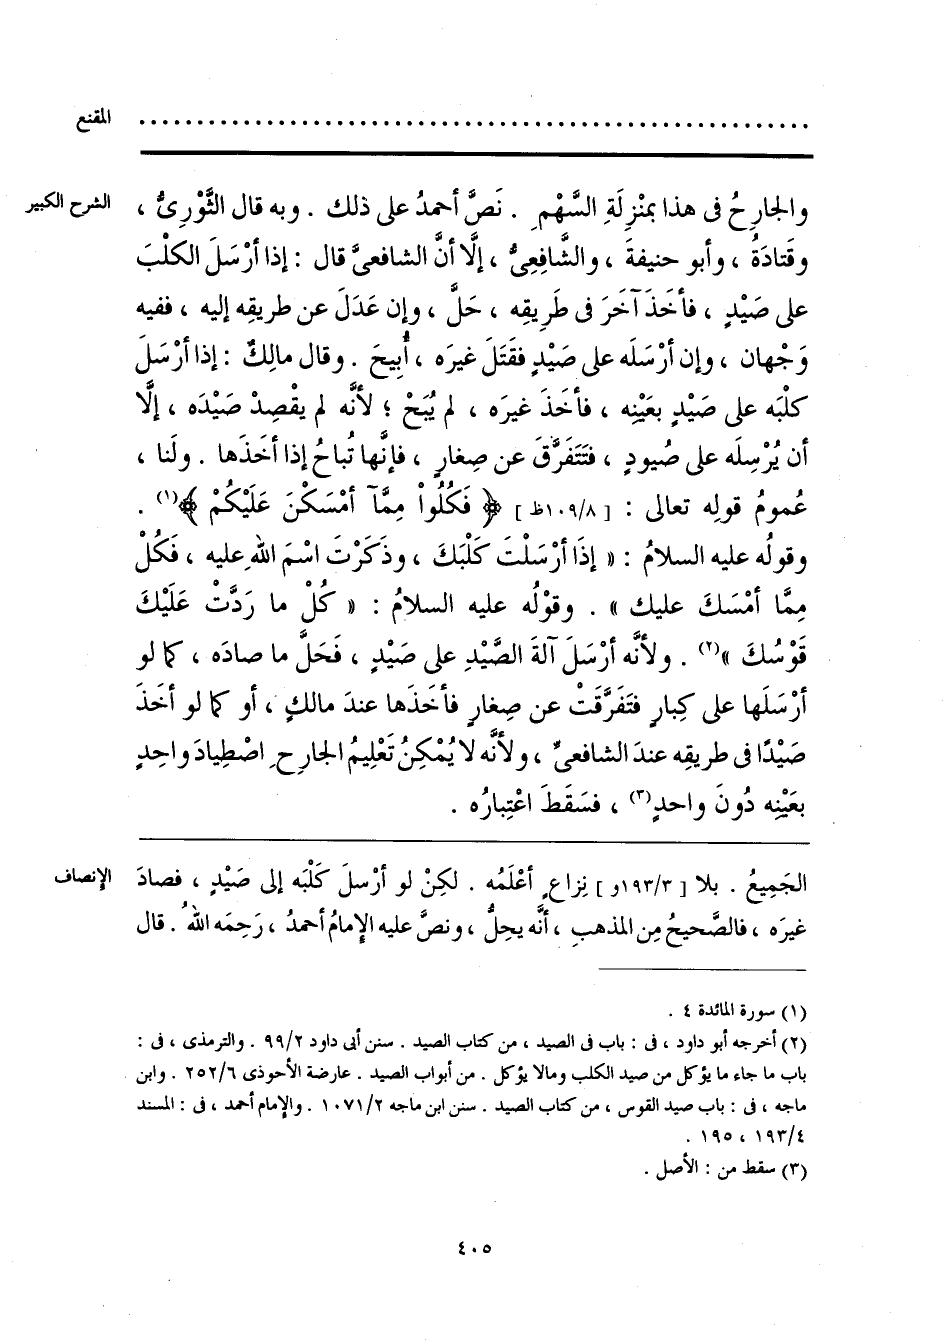 المقنع ..........................................................
الشرح الكبير
والجارِحُ فى هذا بمَنْزِلَةِ السَّهْمِ . نَصَّ أحمدُ على ذلك . وبه قال الثَّوْرِىُّ ،
وقَتادَةُ ، وأبو حنيفةَ ، والشَّافِعِىُّ ، إلَّا أنَّ الشافعىَّ قال : إذا أرْسَلَ الكلْبَ
على صَيْدٍ ، فأخَذَ آخَرَ فى طَرِيقِه ، حَلَّ ، وإن عَدَلَ عن طريقِه إليه ، ففيه
وَجْهان ، وإن أرْسَلَه على صَيْدٍ فقَتَلَ غيرَه ، أُبِيحَ . وقال مالِكٌ : إذا أرْسَلَ
كلْبَه على صَيْدٍ بعَيْنِه ، فأخَذَ غيرَه ، لم يُبَحْ ؛ لأنَّه لم يقْصِدْ صَيْدَه ، إلَّا
أن يُرْسِلَه على صُيودٍ ، فتَتَفَرَّقَ عن صِغارٍ ، فإنَّها تُباحُ إذا أخَذَها . ولَنا ،
عُمومُ قولِه تعالى : [ ١٠٩/٨ظ ] ﴿ فَكُلُواْ مِمَّآ أَمْسَكْنَ عَلَيْكُمْ ﴾(١) .
وقولُه عليه السلامُ : « إذَا أرْسَلْتَ كَلْبَكَ ، وذَكَرْتَ اسْمَ اللهِ عليه ، فَكُلْ
مِمَّا أمْسَكَ عليك » . وقوْلُه عليه السلامُ : « كُلْ ما رَدَّتْ عَلَيْكَ
قَوْسُكَ »(٢) . ولأنَّه أرْسَلَ آلةَ الصَّيْدِ على صَيْدٍ ، فَحَلَّ ما صادَه ، كما لو
أرْسَلَها على كِبارٍ فتَفَرَّقَتْ عن صِغارٍ فأخَذَها عندَ مالكٍ ، أو كما لو أخَذَ
صَيْدًا فى طريقِه عندَ الشافعىِّ ، ولأنَّه لا يُمْكِنُ تَعْلِيمُ الجارِحِ اصْطِيادَ واحِدٍ
بعَيْنِه دُونَ واحدٍ(٣) ، فسَقَطَ اعْتِبارُه .
الإنصاف
الجَمِيعُ . بلا [ ١٩٣/٣و ] نِزاعٍ أعْلَمُه . لكِنْ لو أرْسلَ كَلْبَه إلى صَيْدٍ ، فصادَ
غيرَه ، فالصَّحيحُ مِن المذهبِ ، أنَّه يحِلُّ ، ونصَّ عليه الإِمامُ أحمدُ ، رَحِمَه اللهُ . قال
(١) سورة المائدة ٤ .
(٢) أخرجه أبو داود ، فى : باب فى الصيد ، من كتاب الصيد . سنن أبى داود ٩٩/٢ . والترمذى ، فى :
باب ما جاء ما يؤكل من صيد الكلب ومالا يؤكل . من أبواب الصيد . عارضة الأحوذى ٢٥٢/٦ . وابن
ماجه ، فى : باب صيد القوس ، من كتاب الصيد . سنن ابن ماجه ١٠٧١/٢ . والإمام أحمد ، فى : المسند
١٩٣/٤ ، ١٩٥ .
(٣) سقط من : الأصل .
٤٠٥